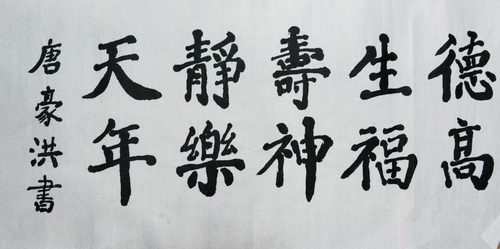 德高
生福
壽神
靜樂
天年
唐豪洪書